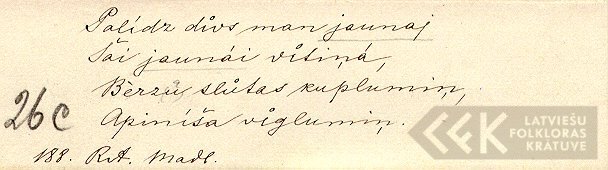 Palídz divs man jaunaj
Šài jaunái vítiņá,
Bèrzu slútas kuplumiņ,
Apiníša víglumiņ.
26c
188. Rit. Madl.
LATVIEŠU
FOLKLORAS
KRĀTUVE